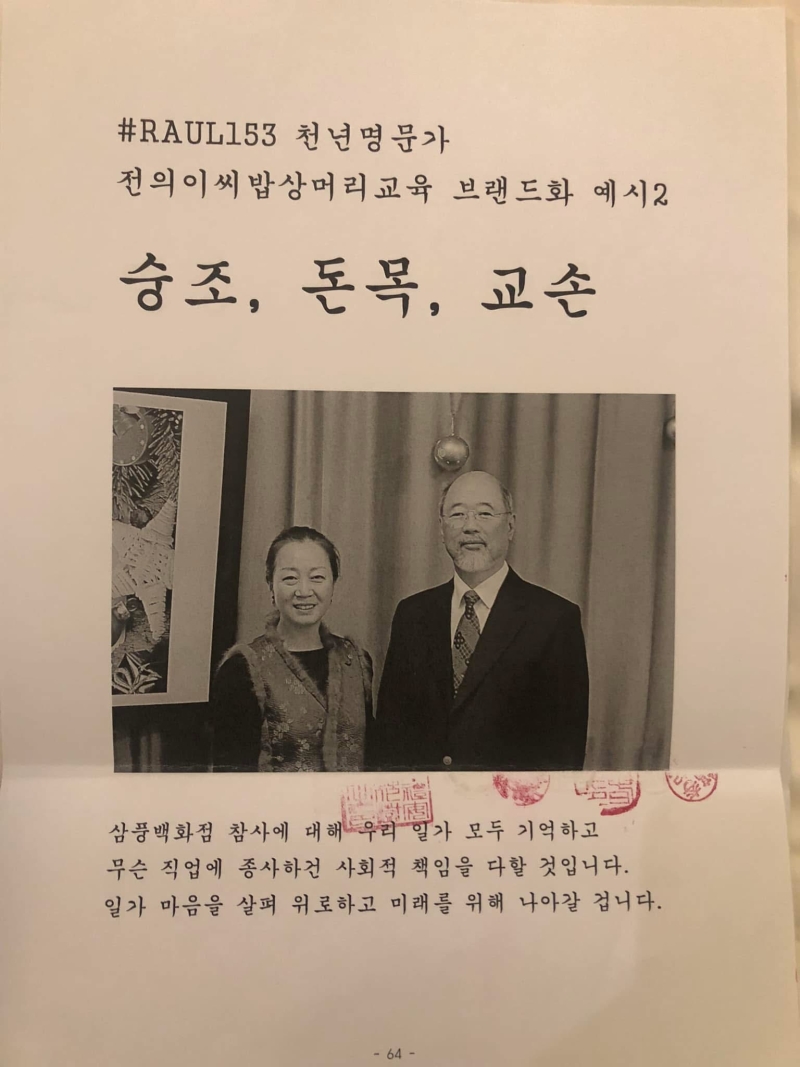 #RAUL153 천년명문가
전의이씨밥상머리교육 브랜드화 예시2
숭조, 돈목, 교손
삼풍백화점 참사에 대해 우리 일가 모두 기억하고
무슨 직업에 종사하건 사회적 책임을 다할 것입니다.
일가 마음을 살펴 위로하고 미래를 위해 나아갈 겁니다.
- 64 -